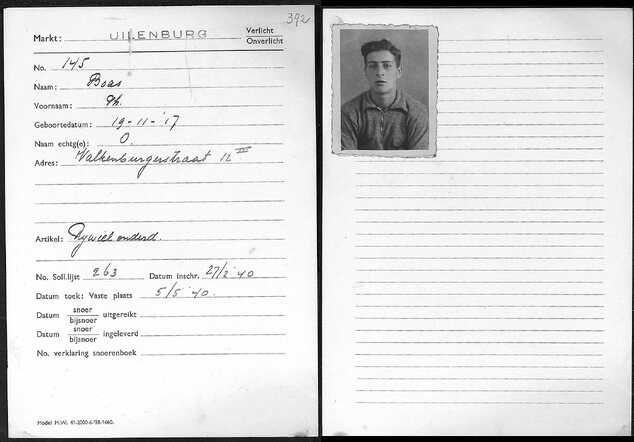 392
Markt: UILENBURG Verlicht
Onverlicht
No. 145
Naam: Boas
Voornaam: Ph.
Geboortedatum: 19-11-'17
Naam echtg(e): O.
Adres: Valkenburgerstraat 12 III
Artikel: Rywiel onderd.
No. Soll.lijst 263 Datum inschr. 27/2 '40
Datum toek: Vaste plaats 5/5 '40.
Datum snoer
bijsnoer uitgereikt
Datum snoer
bijsnoer ingeleverd
No. verklaring snoerenboek